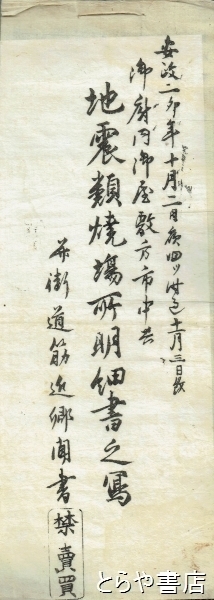 安政二卯年十月二日夜四ツ時ゟ十一月三日迄
御府内御屋敷方市中共
地震類焼場所明細書之寫
并街道筋近郷聞書
禁賣買
とらや書店